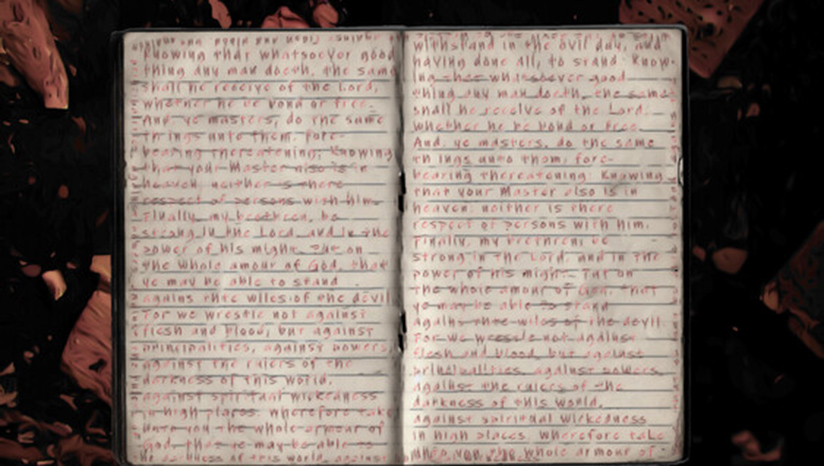 Knowing that whatsoever good
thing any man doeth, the same
shall he receive of the Lord,
whether he be bond or free.
And ye masters, do the same
things unto them, fore-
bearing threatening: Knowing
that your Master also is in
heaven neither is there
respect of persons with him.
Finally, my brethren, be
strong in the Lord, and in the
power of his might. Put on
the whole amour of God, that
ye may be able to stand
agains thte wiles of the devil
For we wrestle not against
flesh and blood, but against
principalities, against powers,
against the rulers of the
darkness of this world,
against spiritual wickedness
in high places. Wherefore take
unto you the whole armour of
God, that ye may be able to
darkness of this world, against
withstand in the evil day, and
having done all, to stand. Know-
ing that whatsoever good
thing any man doeth, the same
shall he receive of the Lord,
whether he be bond or free.
And, ye masters, do the same
things unto them, fore-
bearing threatening: Knowing
that your Master also is in
heaven; neither is there
respect of persons with him.
Finally, my brethren, be
strong in the Lord, and in the
power of his might. Put on
the whole amour of God, that
ye may be able to stand
agains thte wiles of the devil.
For we wrestle not against
flesh and blood, but against
principalities, against powers,
against the rulers of the
darkness of this world,
against spiritual wickedness
in high places. Wherefore take
unto you the whole armour of